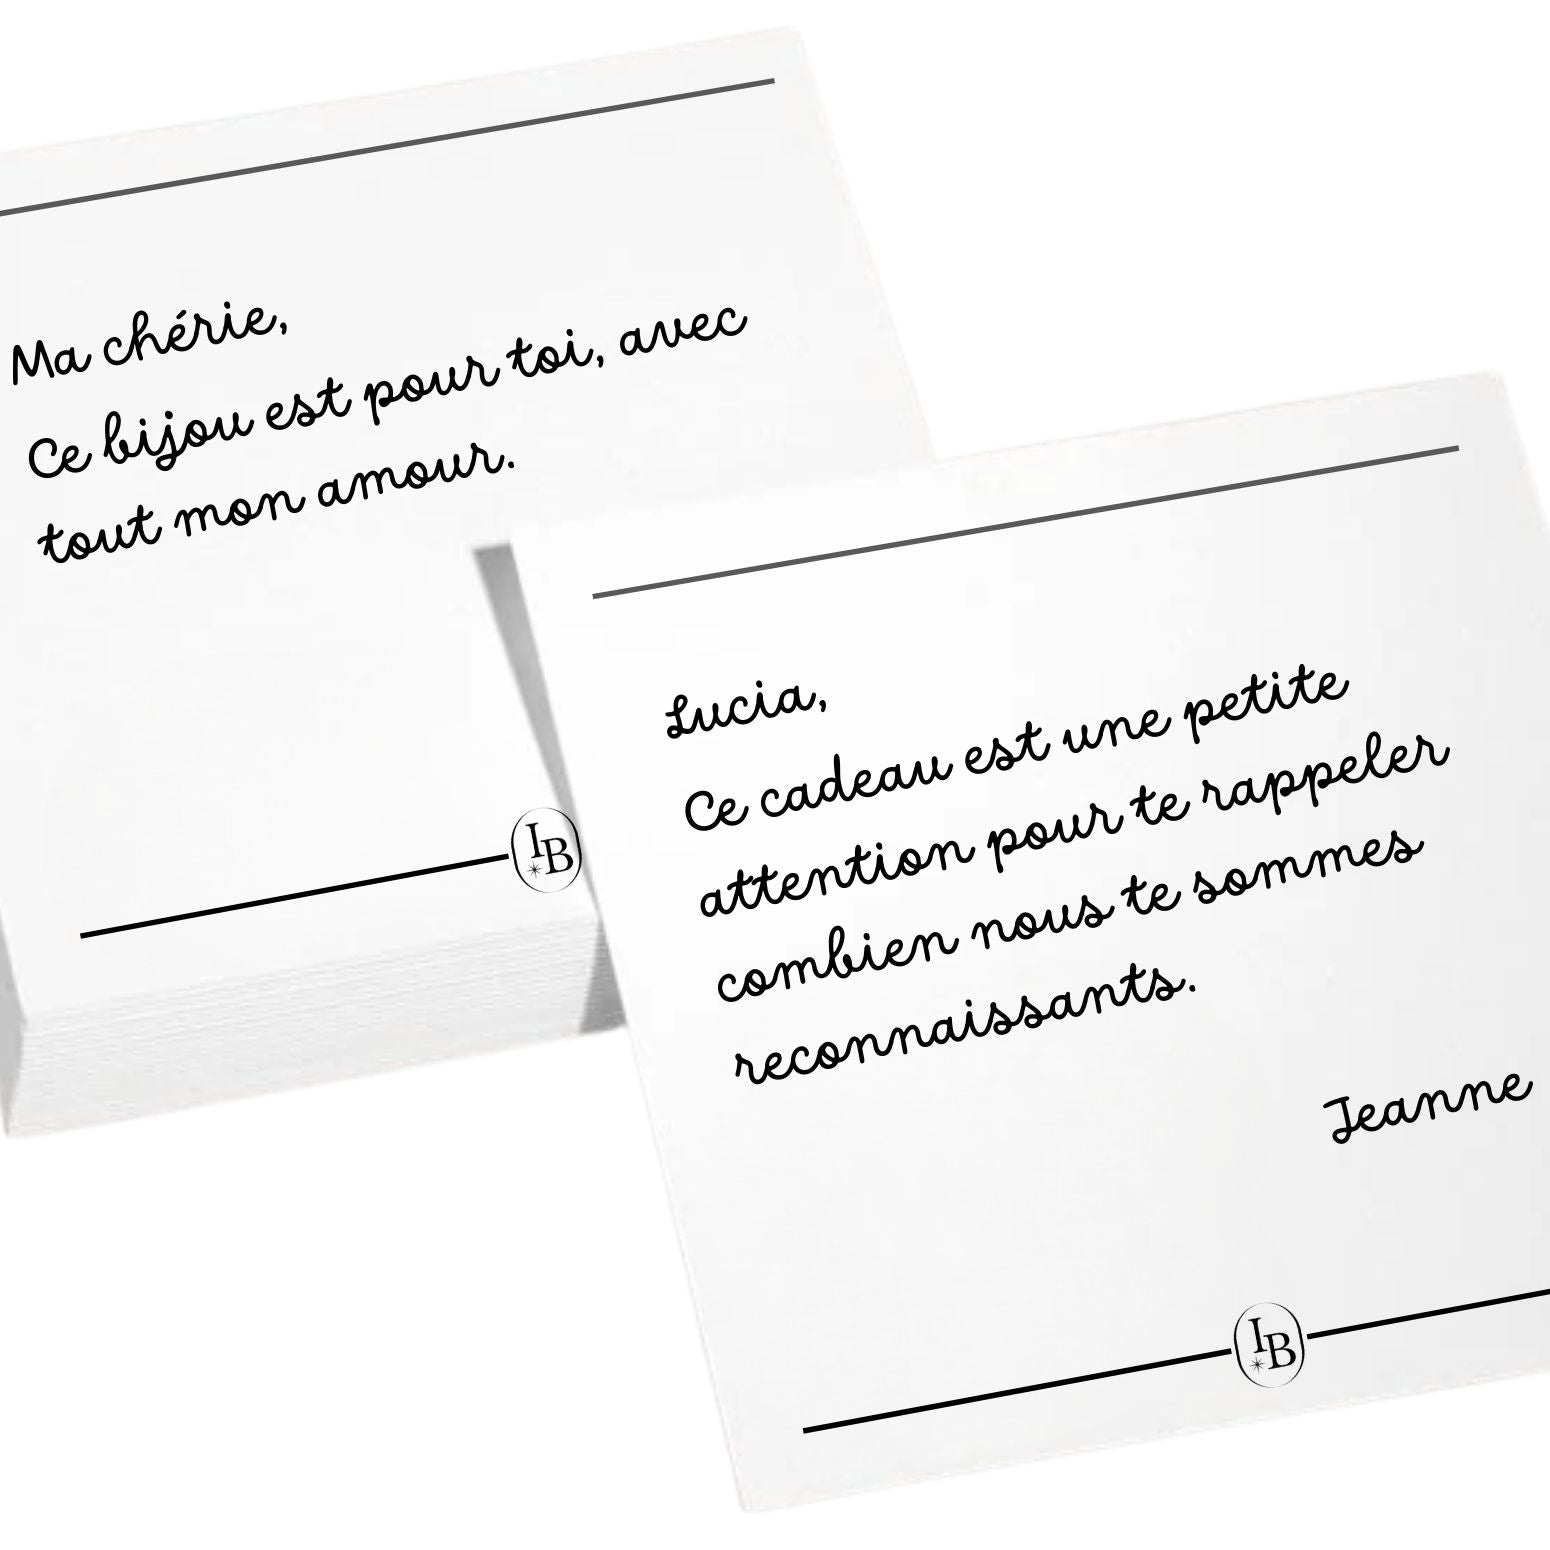 Ma chérie,
Ce bijou est pour toi, avec
tout mon amour.
IB
Lucia,
Ce cadeau est une petite
attention pour te rappeler
combien nous te sommes
reconnaissants.
Jeanne
IB